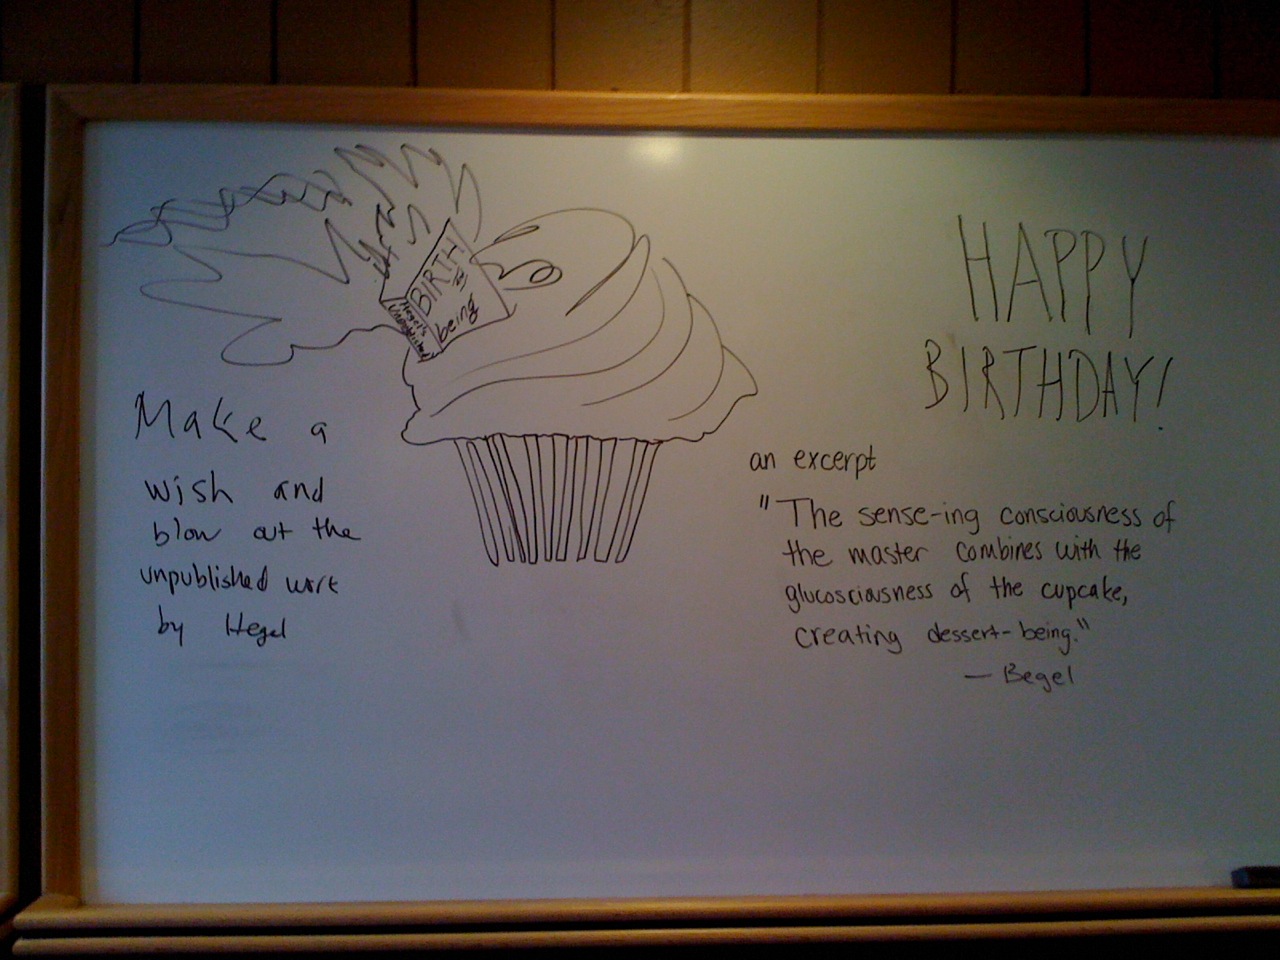 BIRTH
being
Hegel's
Unpublished
HAPPY
BIRTHDAY!
Make a
wish and
blow out the
unpublished work
by Hegel
an excerpt
"The sense-ing consciousness of
the master combines with the
glucosciousness of the cupcake,
creating dessert-being."
— Begel